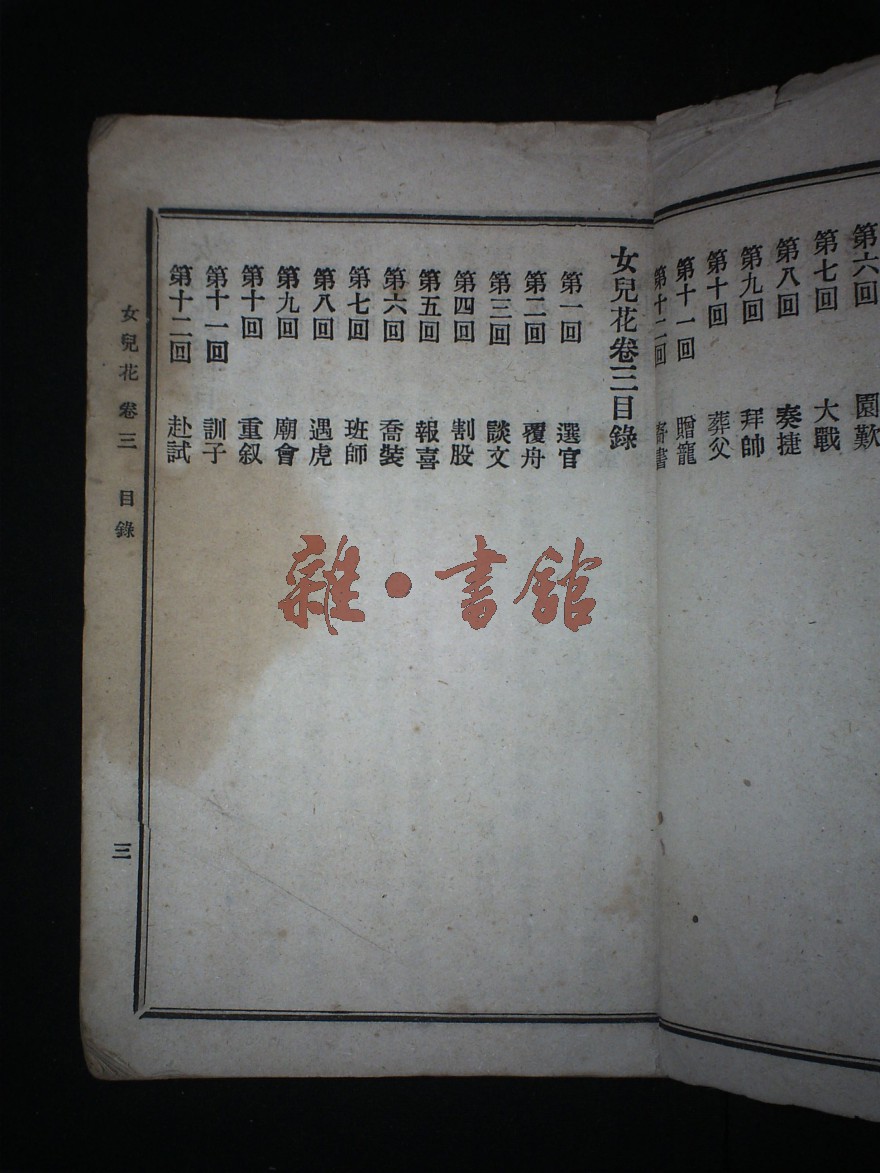 第六回 園歎
第七回 大戰
第八回 奏捷
第九回 拜帥
第十回 葬父
第十一回 贈寵
第十二回 書
女兒花卷三目錄
第一回 選官
第二回 覆舟
第三回 談文
第四回 割股
第五回 報喜
第六回 喬裝
第七回 班師
第八回 遇虎
第九回 廟會
第十回 重叙
第十一回 訓子
第十二回 赴試
女兒花 卷三 目錄
三
雜·書館